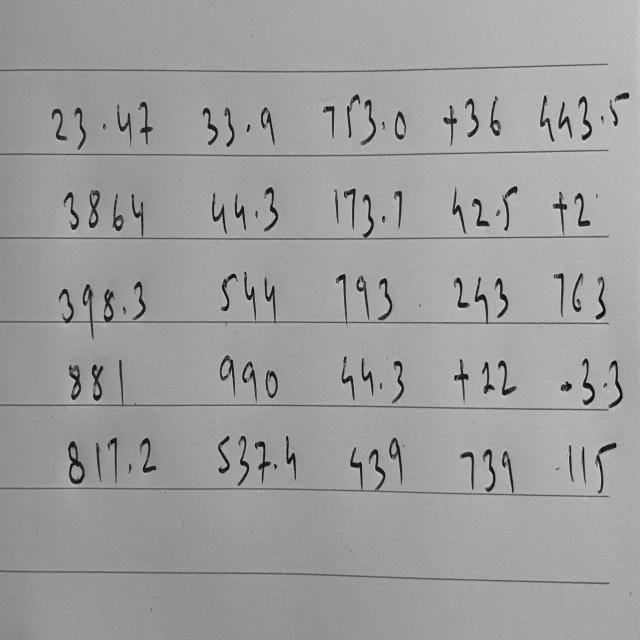 23.47 33.9 753.0 +36 443.5
3864 44.3 173.7 42.5 +2
398.3 544 793 243 763
881 990 44.3 +22 -3.3
817.2 537.4 439 739 115